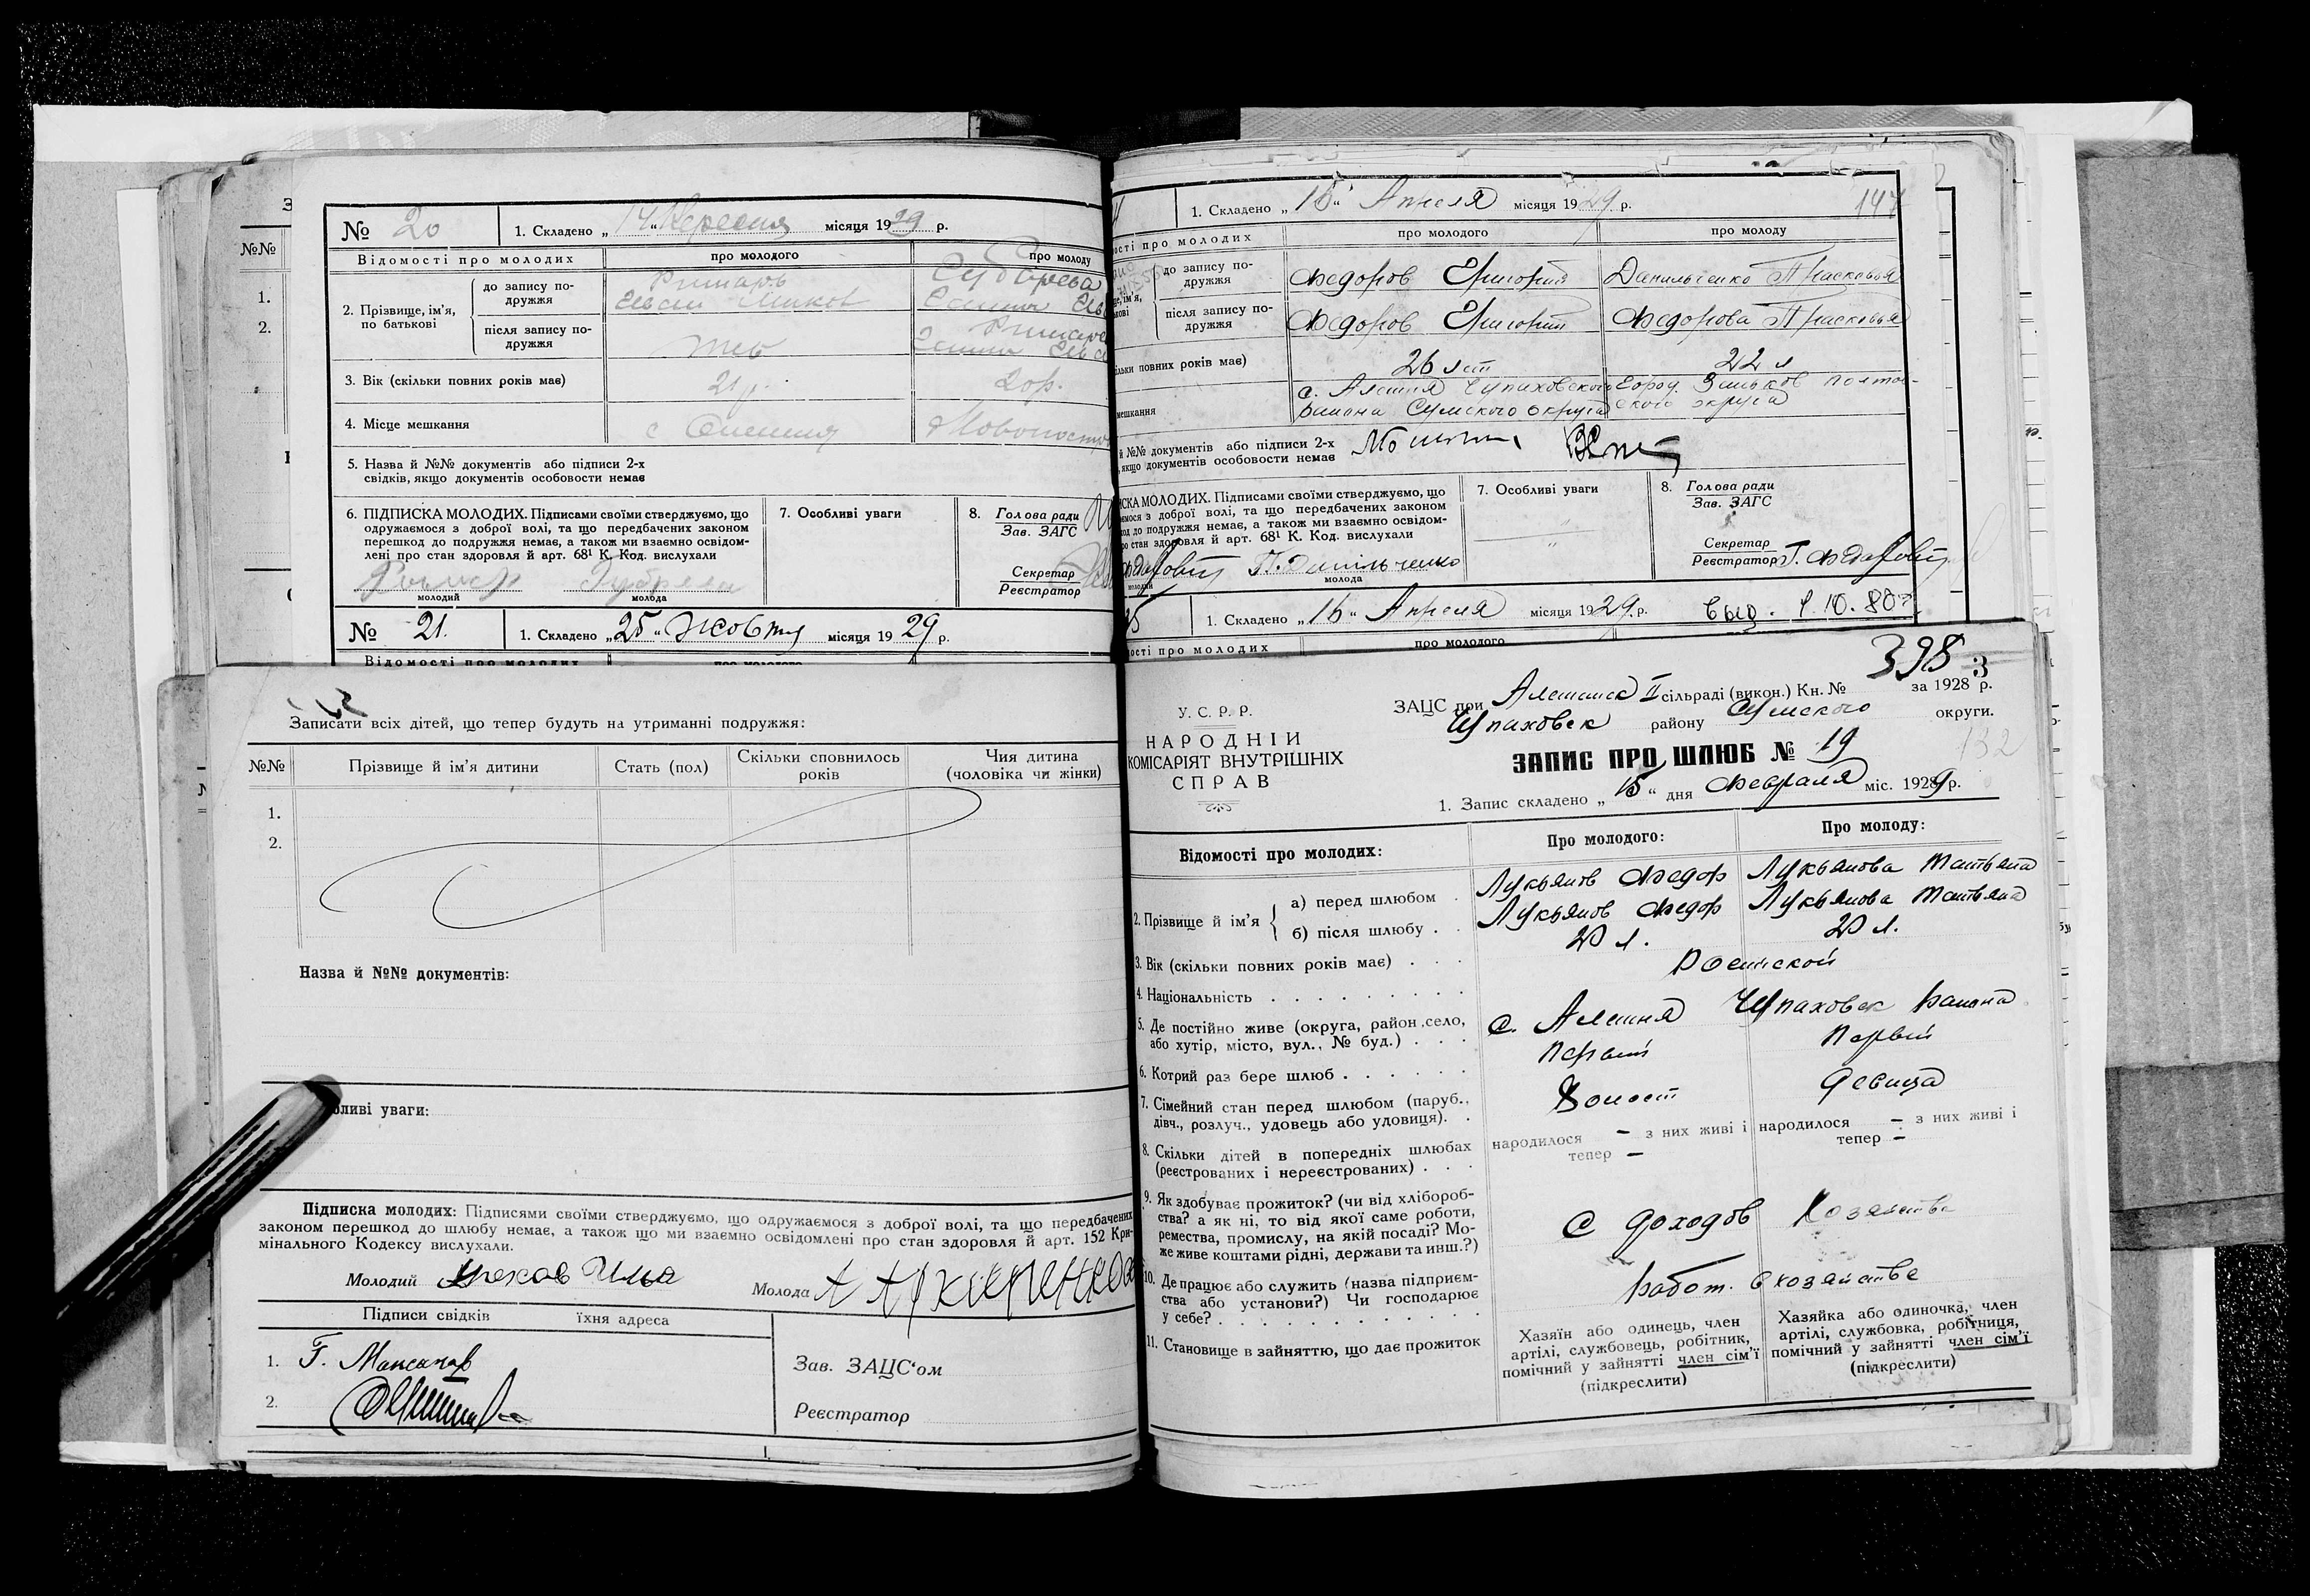 № 20
1. Складено „14“ Вересня місяця 1929 р.
Відомості про молодих
про молодого
про молоду
2. Прізвище, ім'я, по батькові
до запису подружжя
після запису подружжя
3. Вік (скільки повних років має)
21 р.
20 р.
4. Місце мешкання
5. Назва й №№ документів або підписи 2-х
свідків, якщо документів особовости немає
6. ПІДПИСКА МОЛОДИХ. Підписами своїми стверджуємо, що
одружаємося з доброї волі, та що передбачених законом
перешкод до подружжя немає, а також ми взаємно освідом-
лені про стан здоровля й арт. 68¹ К. Код. вислухали
молодий
молода
7. Особливі уваги
8. Голова ради
Зав. ЗАГС
Секретар
Реєстратор
№ 21.
1. Складено „25“ Жовтня місяця 1929 р.
Відомості про молодих
Записати всіх дітей, що тепер будуть на утриманні подружжя:
№№
Прізвище й ім'я дитини
Стать (пол)
Скільки сповнилось
років
Чия дитина
(чоловіка чи жінки)
1.
2.
Назва й №№ документів:
бливі уваги:
Підписка молодих: Підписями своїми стверджуємо, що одружаємося з доброї волі, та що передбачених
законом перешкод до шлюбу немає, а також що ми взаємно освідомлені про стан здоровля й арт. 152 Кри-
мінального Кодексу вислухали.
Молодий
Молода
Підписи свідків
їхня адреса
1. Г.
2.
Зав. ЗАЦС'ом
Реєстратор
1. Складено „15“ Апреля місяця 1929 р.
147
ості про молодих
про молодого
про молоду
до запису по-
дружжя
Федоров Григорий
Данильченко Прасковья
після запису по-
дружжя
Федоров Григорий
Федорова Прасковья
ільки повних років має)
26 лет
22 л
мешкання
с. Алешня Чупаховского
района Сумского округа
Город. Зиньков Полтав-
ского округа
й №№ документів або підписи 2-х
, якщо документів особовости немає
ИСКА МОЛОДИХ. Підписами своїми стверджуємо, що
ємося з доброї волі, та що передбачених законом
од до подружжя немає, а також ми взаємно освідом-
ро стан здоровля й арт. 68¹ К. Код. вислухали
П. Данильченко
молодий
молода
7. Особливі уваги
8. Голова ради
Зав. ЗАГС
Секретар
Реєстратор
1. Складено „16“ Апреля місяця 1929 р.
ості про молодих
про молодого
398
У. С. Р. Р.
НАРОДНІЙ
КОМІСАРІЯТ ВНУТРІШНІХ
СПРАВ
ЗАЦС при Алешанск II сільраді (викон.) Кн. № 3 за 1928 р.
Чупаховск району Сумского округи.
132
ЗАПИС ПРО ШЛЮБ № 19
1. Запис складено „15“ дня Февраля міс. 1929 р.
Відомості про молодих:
Про молодого:
Про молоду:
2. Прізвище й ім'я
а) перед шлюбом
Лукьянов Федор
Лукьянова Татьяна
б) після шлюбу
Лукьянов Федор
Лукьянова Татьяна
3. Вік (скільки повних років має)
20 л.
20 л.
4. Національність
Росийской
5. Де постійно живе (округа, район, село,
або хутір, місто, вул., № буд.)
с. Алешня Чупаховск района
6. Котрий раз бере шлюб
Первый
Первый
7. Сімейний стан перед шлюбом (паруб.,
дівч., розлуч., удовець або удовиця).
Холост
Девица
8. Скільки дітей в попередніх шлюбах
(реєстрованих і нереєстрованих)
народилося – з них живі і
тепер –
народилося – з них живі і
тепер –
9. Як здобуває прожиток? (чи від хлібороб-
ства? а як ні, то від якої саме роботи,
ремества, промислу, на якій посаді? Мо-
же живе коштами рідні, держави та инш.?)
С доходов Хозяйства
10. Де працює або служить (назва підприєм-
ства або установи?) Чи господарює
у себе?
Работ. в хозяйстве
11. Становище в зайняттю, що дає прожиток
Хазяїн або одинець, член
артілі, службовець, робітник,
помічний у зайнятті член сім'ї
(підкреслити)
Хазяйка або одиночка, член
артілі, службовка, робітниця,
помічний у зайнятті член сім'ї
(підкреслити)